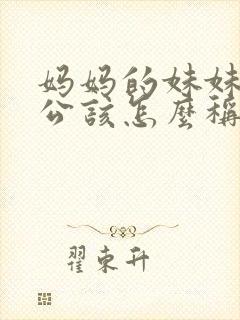 妈妈的妹妹
公該怎麼稱
翟東升